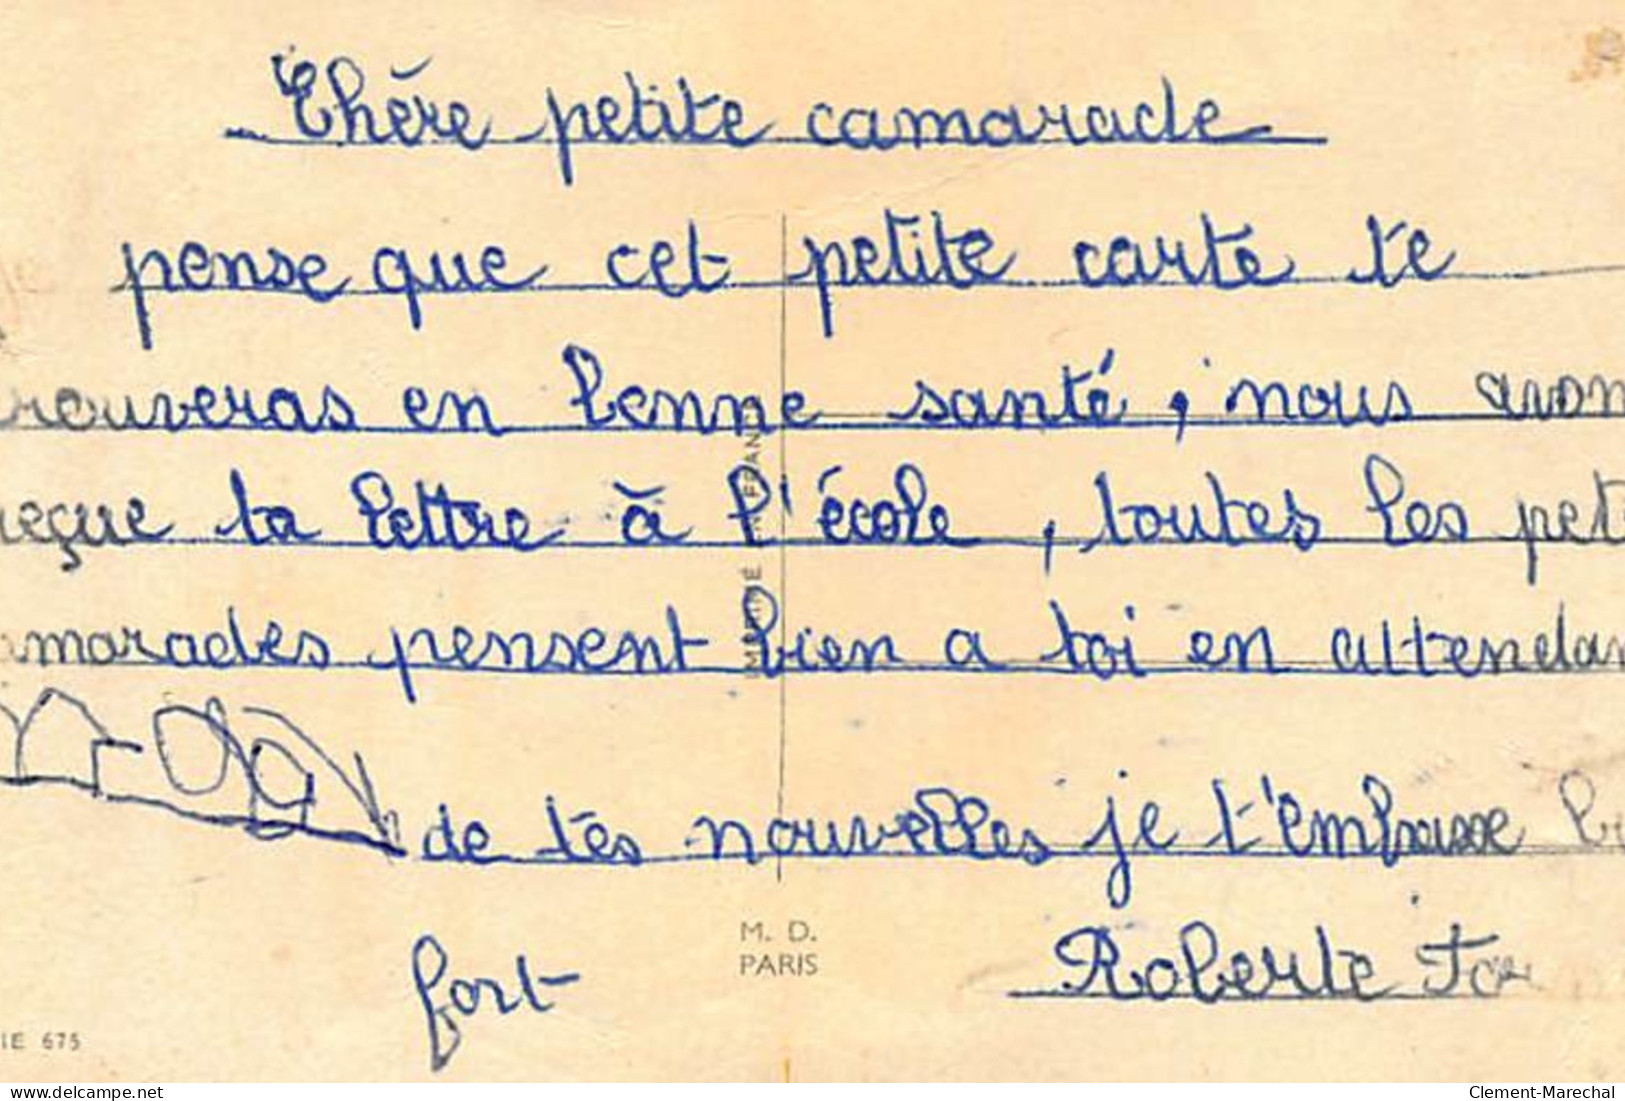 Chère petite camarade
pense que cet petite carte te
rouveras en bonne santé, nous avon
reçue ta lettre à l'école, toutes les pet
marades pensent bien a toi en attendan
de tes nouvelles je t'embrasse
fort
Roberte
IMPRIMÉ EN FRANCE
M. D.
PARIS
IE 675
delcampe.net
Clement-Marechal